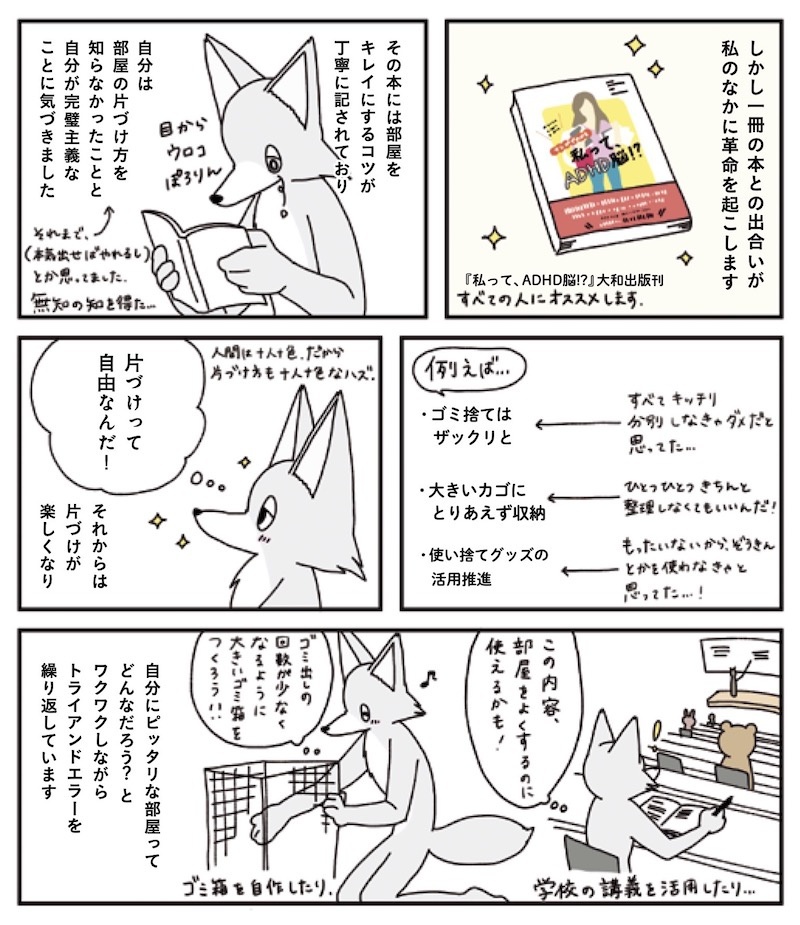 しかし一冊の本との出合いが
私のなかに革命を起こします
私って、
ADHD脳!?
『私って、ADHD脳!?』大和出版刊
すべての人にオススメします。
その本には部屋を
キレイにするコツが
丁寧に記されており
目から
ウロコ
ぽろりん
自分は
部屋の片づけ方を
知らなかったことと
自分が完璧主義な
ことに気づきました
それまで、
(本気出せばやれるし)
とか思ってました。
無知の知を得た…
例えば…
・ゴミ捨ては
ザックリと
すべてキッチリ
分別しなきゃダメだと
思ってた…
・大きいカゴに
とりあえず収納
ひとつひとつきちんと
整理しなくてもいいんだ!
・使い捨てグッズの
活用推進
もったいないから、ぞうきん
とかを使わなきゃと
思ってた…!
人間は十人十色。だから
片づけ方も十人十色なハズ。
片づけって
自由なんだ!
それからは
片づけが
楽しくなり
この内容、
部屋をよくするのに
使えるかも!
学校の講義を活用したり…
ゴミ出しの
回数が少なく
なるように
大きいゴミ箱を
つくろう!!
ゴミ箱を自作したり。
自分にピッタリな部屋って
どんなだろう?と
ワクワクしながら
トライアンドエラーを
繰り返しています